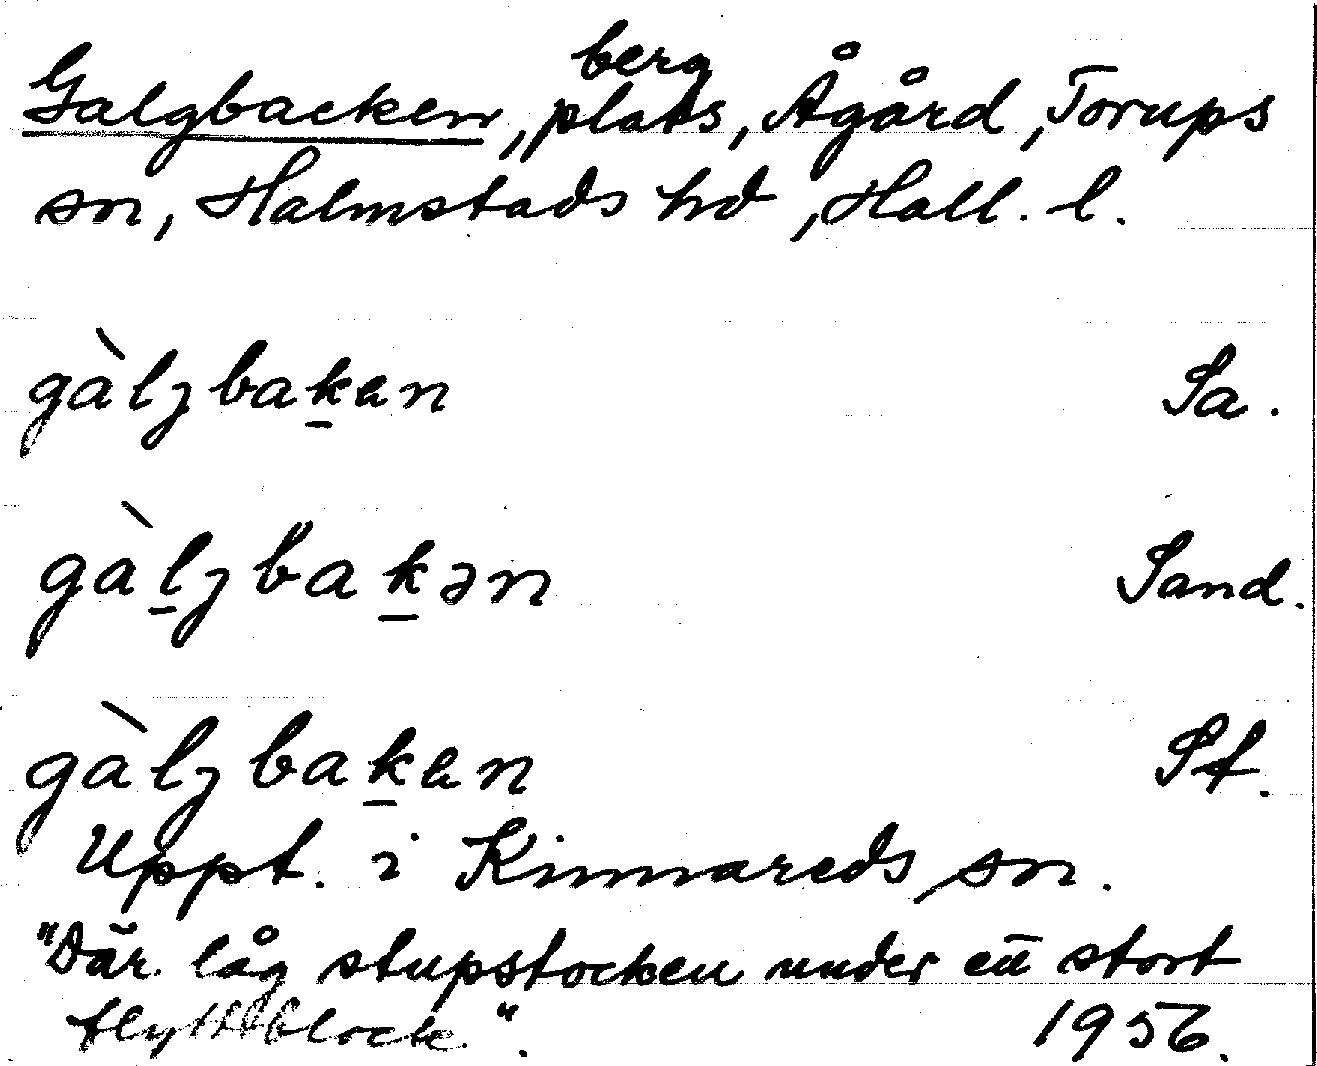 berg
Galgbacken, plats, Ågård, Torups
sn, Halmstads hd, Hall. l.
gàlʒbak̲en Sa.
gàl̲ʒbak̲ən Sand.
gàlʒbak̲en Sf.
Uppt. i Kinnareds sn.
"Där låg stupstocken under ett stort
flyttblock". 1956.